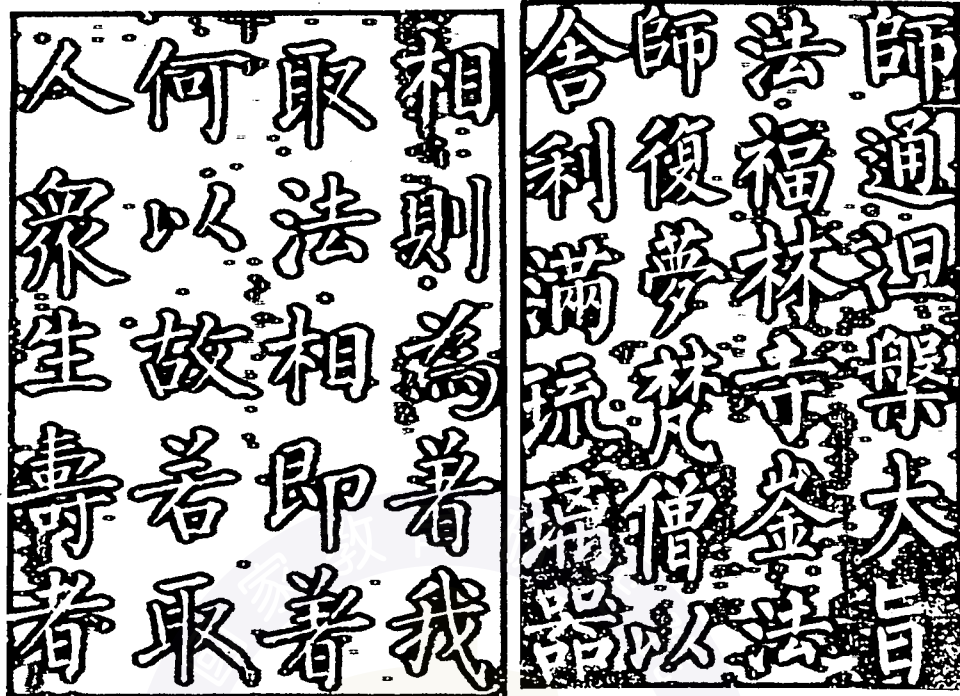 師通涅槃大旨
法福林寺崟法
師復夢梵僧以
舍利滿琉璃器
相則為著我
取法相即著
何以故若取
人眾生壽者
家教